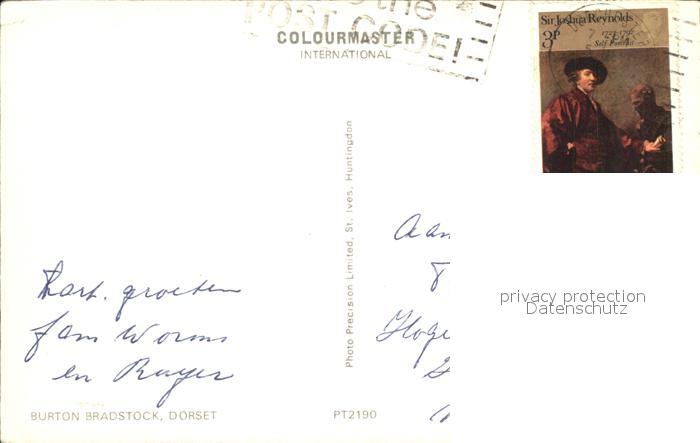 the
POST CODE!
COLOURMASTER
INTERNATIONAL
Sir Joshua Reynolds
3P
Self Portrait
Photo Precision Limited, St. Ives, Huntingdon
Hart. groeten
fam Worms
en
Aan
privacy protection
Datenschutz
BURTON BRADSTOCK, DORSET
PT2190